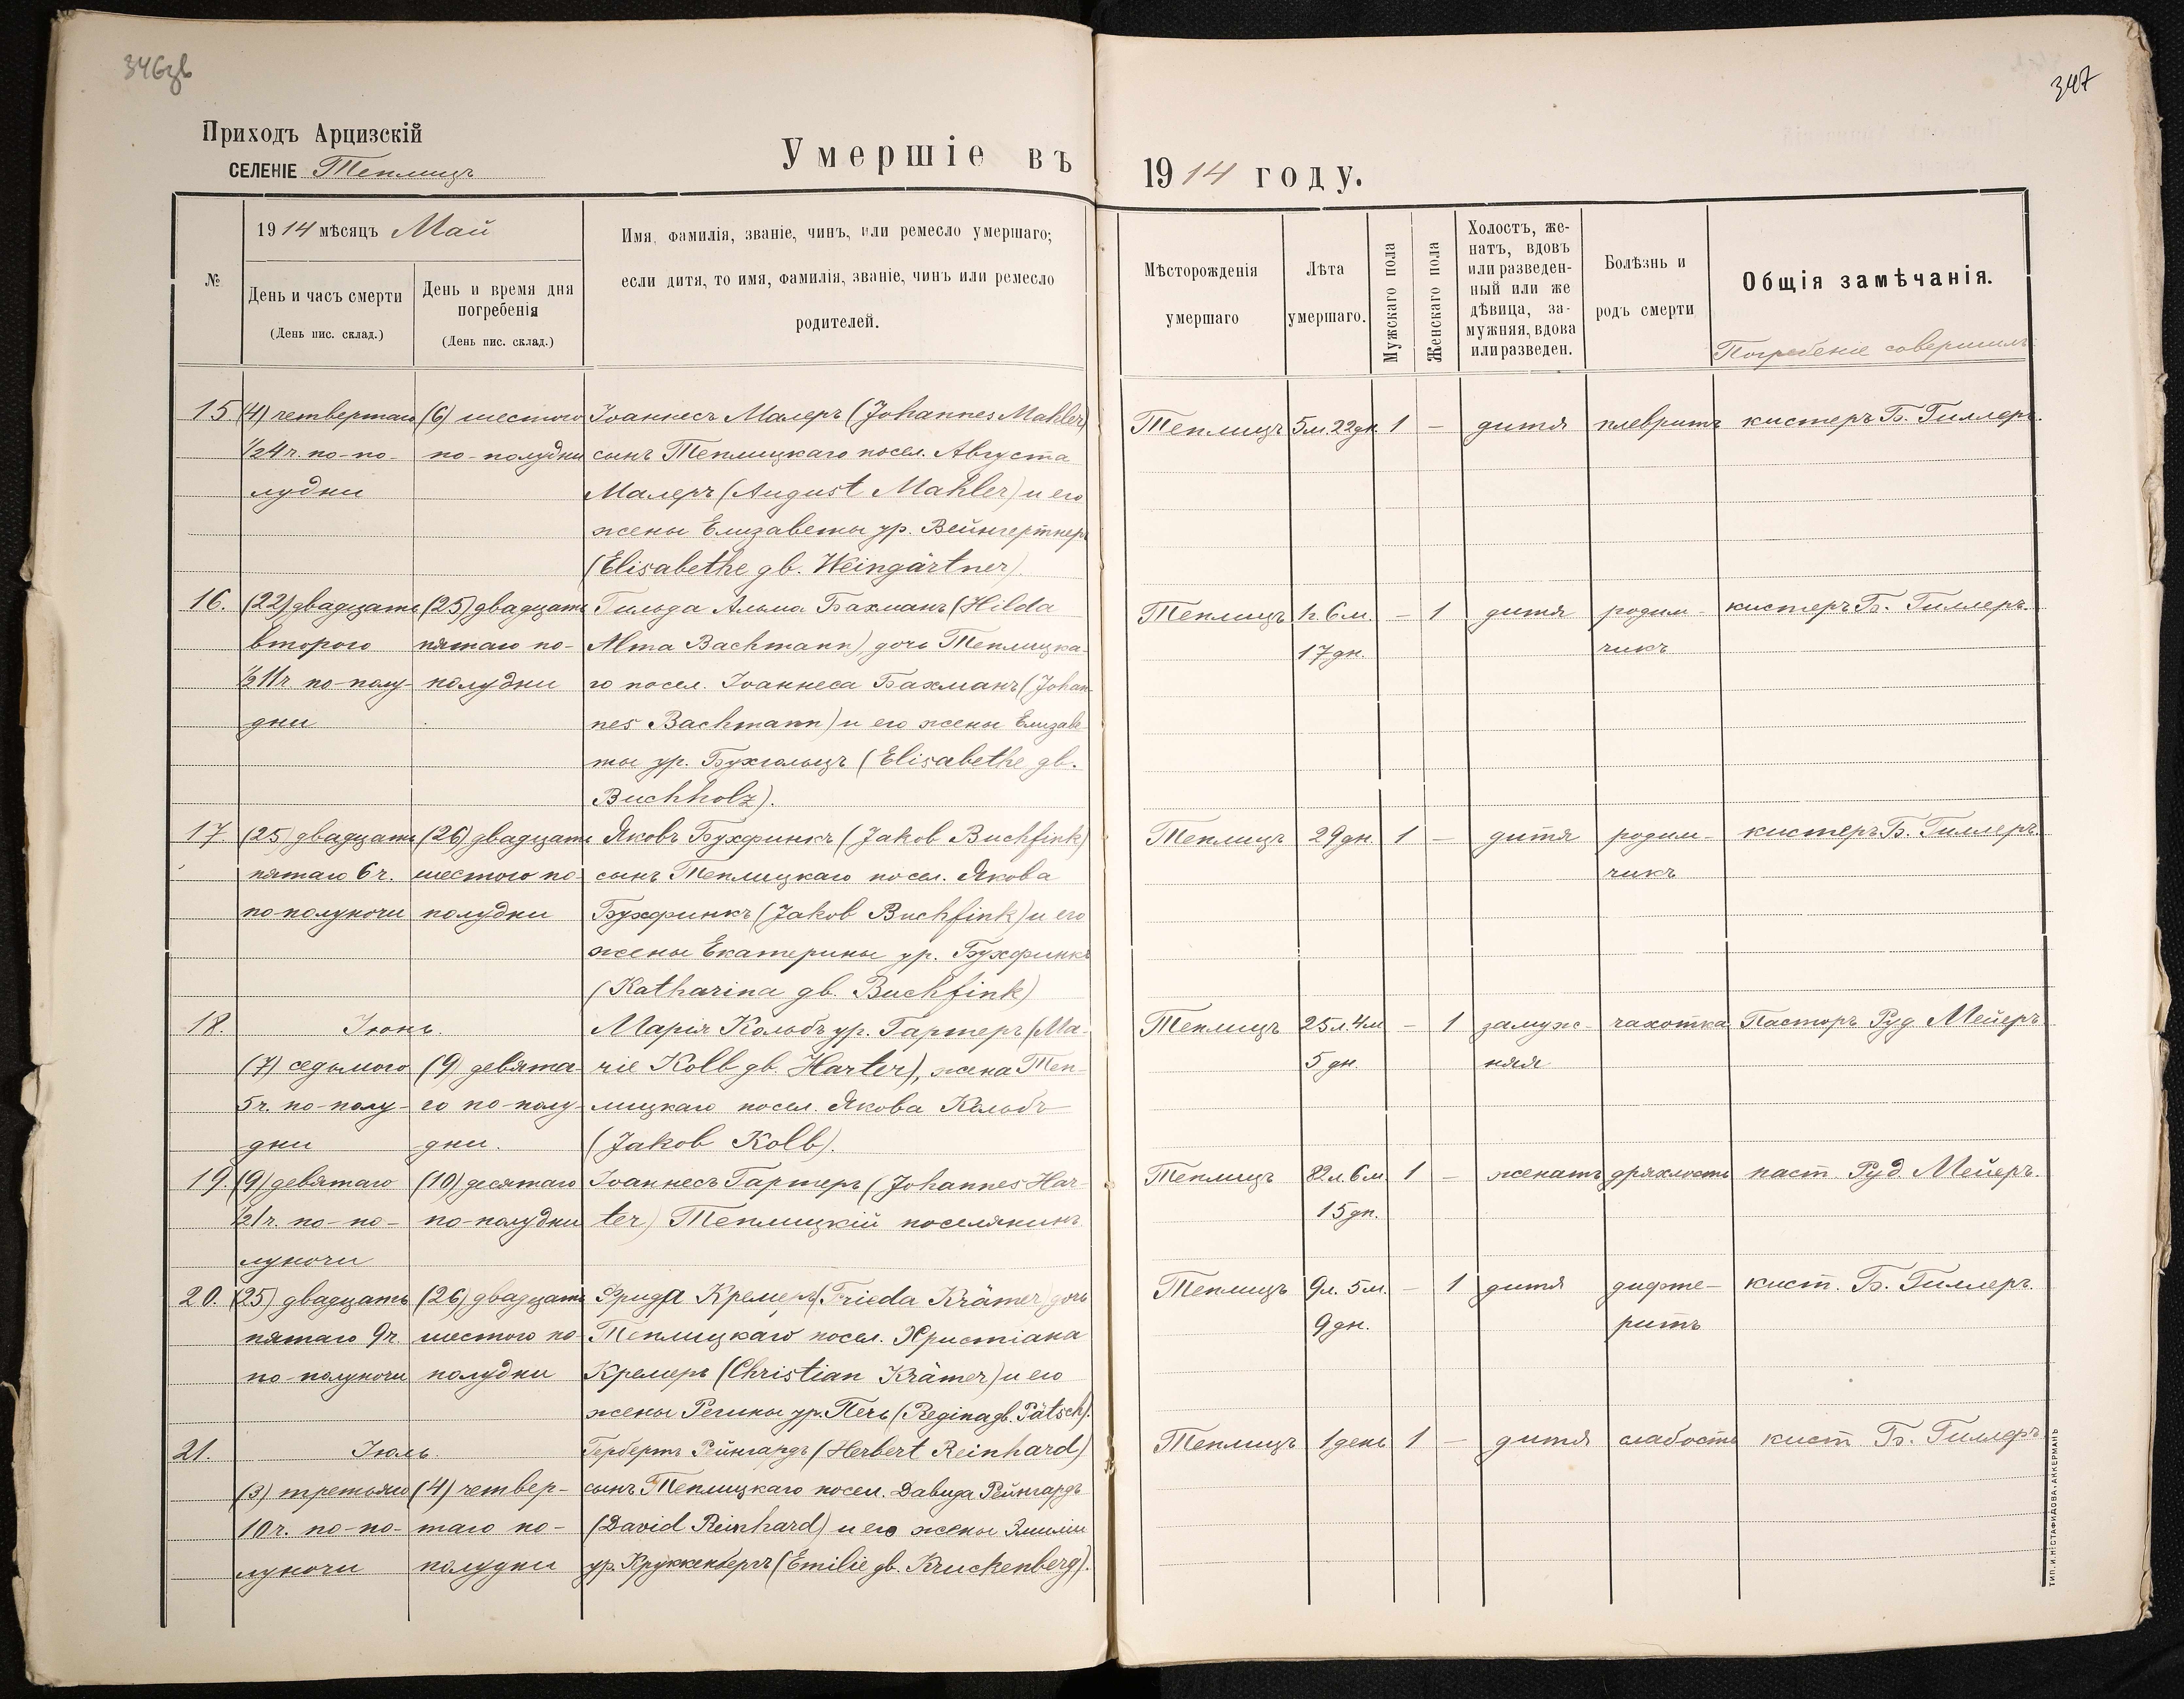 346зв
347
Приходъ Арцизскій
СЕЛЕНІЕ Теплицъ
Умершіе въ 1914 году.
№
1914 мѣсяцъ Май
День и часъ смерти
(День пис. склад.)
День и время дня
погребенія
(День пис. склад.)
Имя, фамилія, званіе, чинъ, или ремесло умершаго;
если дитя, то имя, фамилія, званіе, чинъ или ремесло
родителей.
Мѣсторожденія
умершаго
Лѣта
умершаго.
Мужскаго пола
Женскаго пола
Холостъ, же-
натъ, вдовъ
или разведен-
ный или же
дѣвица, за-
мужняя, вдова
или разведен.
Болѣзнь и
родъ смерти
Общія замѣчанія.
Погребеніе совершилъ
15. (4) четвертаго (6) шестого Іоаннесъ Малеръ (Johannes Mahler) Теплицъ 5м. 22дн. 1 — дитя плевритъ кистеръ Б. Гиллеръ.
½4 ч. по-по- по-полудни сынъ Теплицкаго посел. Августа
лудни Малеръ (August Mahler) и его
жены Елизаветы ур. Вейнгертнеръ
(Elisabethe gb. Weingärtner).
16. (22) двадцать (25) двадцать Гильда Альма Бахманъ (Hilda Теплицъ 1г. 6м. — 1 дитя родим- кистеръ Б. Гиллеръ.
второго пятаго по- Alma Bachmann), дочь Теплицка- 17 дн. чикъ
½11 ч. по-полу- полудни го посел. Іоаннеса Бахманъ (Johan-
дни nes Bachmann) и его жены Елизаве
ты ур. Бухгольцъ (Elisabethe gb.
Buchholz).
17. (25) двадцать (26) двадцать Яковъ Бухфинкъ (Jakob Buchfink) Теплицъ 29 дн. 1 — дитя родим- кистеръ Б. Гиллеръ.
пятаго 6 ч. шестого по- сынъ Теплицкаго посел. Якова чикъ
по-полуночи полудни Бухфинкъ (Jakob Buchfink) и его
жены Екатерины ур. Бухфинкъ
(Katharina gb. Buchfink)
18. Іюнь. Марія Кольбъ ур. Гартеръ (Ma- Теплицъ 25л. 4м — 1 замуж- чахотка Пасторъ Руд. Мейеръ
(7) седьмого (9) девята- rie Kolb gb. Harter), жена Теп- 5 дн. няя
5 ч. по-полу- го по-полу- лицкаго посел. Якова Кольбъ
дни дни. (Jakob Kolb).
19. (9) девятаго (10) десятаго Іоаннесъ Гартеръ (Johannes Har- Теплицъ 82л. 6м. 1 — женатъ дряхлость паст. Руд. Мейеръ.
½1 ч. по-по- по-полудни ter) Теплицкій поселянинъ 15 дн.
луночи
20. (25) двадцать (26) двадцать Фрида Кремеръ (Frieda Krämer) дочь Теплицъ 9л. 5м. — 1 дитя дифте- кист. Б. Гиллеръ.
пятаго 9 ч. шестого по- Теплицкаго посел. Христіана 9 дн. ритъ
по полуночи полудни Кремеръ (Christian Krämer) и его
жены Регины ур. Печъ (Regina gb. Pätsch).
21. Іюль. Гербертъ Рейнгардъ (Herbert Reinhard) Теплицъ 1 день 1 — дитя слабость кист. Б. Гиллеръ
(3) третьяго (4) четвер- сынъ Теплицкаго посел. Давида Рейнгардъ
10 ч. по-по- таго по- (David Reinhard) и его жены Эмиліи
луночи полудни ур. Круккенбергъ (Emilie gb. Kruckenberg).
ТИП. И. Н. СТАФИДОВА, АККЕРМАНЪ